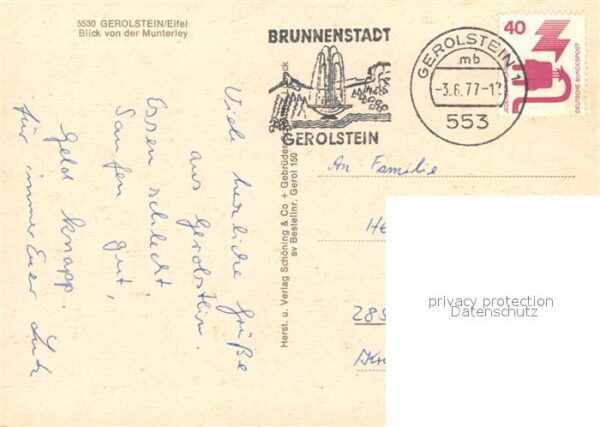 5530 GEROLSTEIN/Eifel
Blick von der Munterley
Viele herzliche Grüße
aus Gerolstein.
Essen schlecht
Saufen gut,
Geld knapp.
für immer Euer Lutz
Herst. u. Verlag Schöning & Co + Gebrüder
sv Bestellnr. Gerol 150
BRUNNENSTADT
GEROLSTEIN
GEROLSTEIN 1
mb
-3.6.77-1
553
40
DEUTSCHE BUNDESPOST
An Familie
He
285
privacy protection
Datenschutz